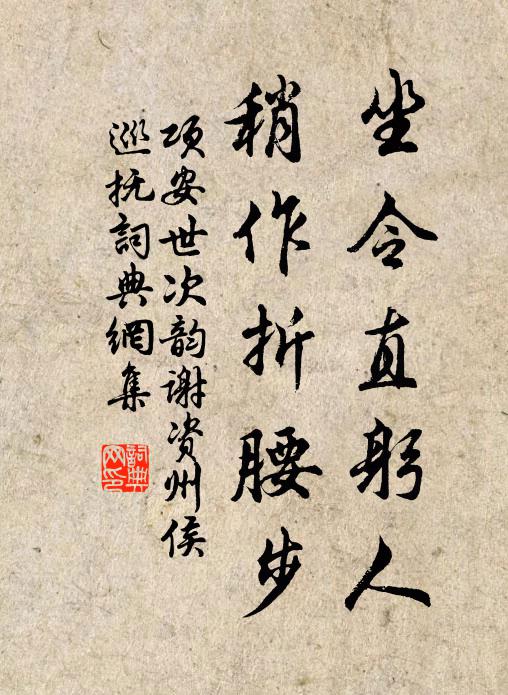 坐令直躬人
稍作折腰步
项安世次韵谢资州侯
巡抚词典网集
词典网印